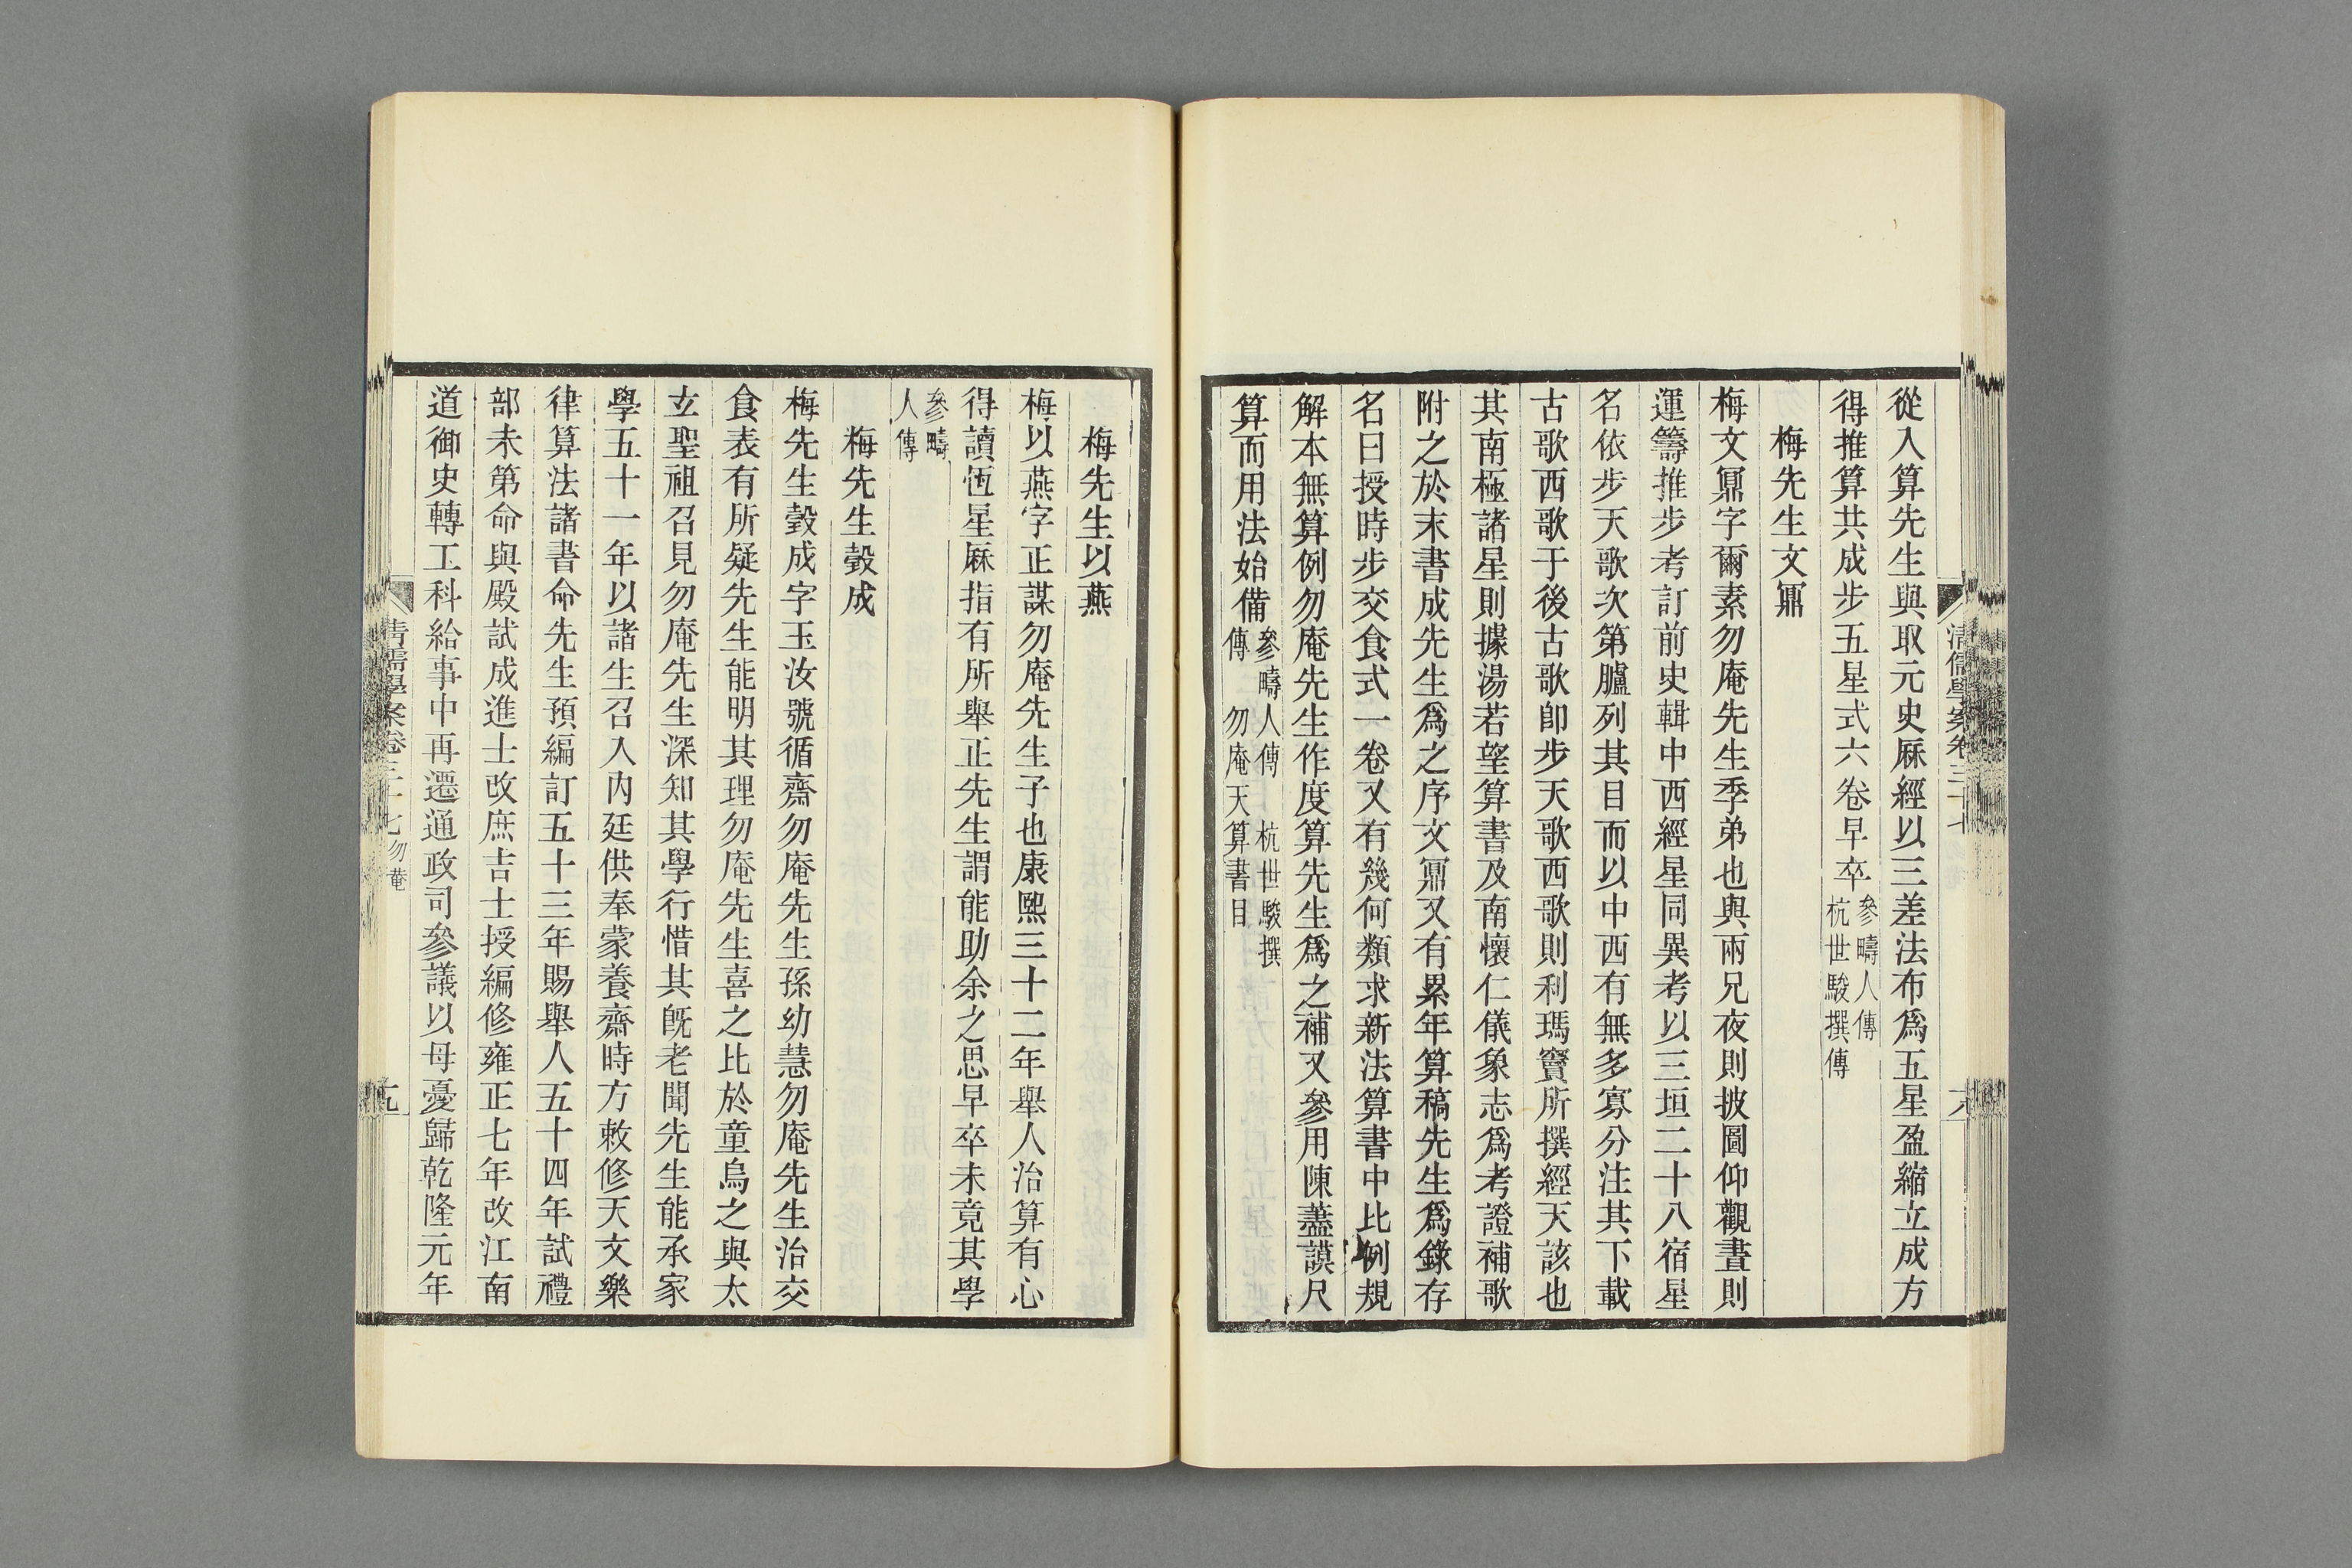 清儒學案卷三十七
從入算先生與取元史厤經以三差法布爲五星盈縮立成方
得推算共成步五星式六卷早卒參疇人傳
杭世駿撰傳
梅先生文鼏
梅文鼏字爾素勿庵先生季弟也與兩兄夜則披圖仰觀晝則
運籌推步考訂前史輯中西經星同異考以三垣二十八宿星
名依步天歌次第臚列其目而以中西有無多寡分注其下載
古歌西歌于後古歌卽步天歌西歌則利瑪竇所撰經天該也
其南極諸星則據湯若望算書及南懷仁儀象志爲考證補歌
附之於末書成先生爲之序文鼏又有累年算稿先生爲錄存
名曰授時步交食式一卷又有幾何類求新法算書中比例規
解本無算例勿庵先生作度算先生爲之補又參用陳藎謨尺
算而用法始備參疇人傳 杭世駿撰
傳 勿庵天算書目
梅先生以燕
梅以燕字正謀勿庵先生子也康熙三十二年舉人治算有心
得讀恆星厤指有所舉正先生謂能助余之思早卒未竟其學
參疇
人傳
梅先生瑴成
梅先生瑴成字玉汝號循齋勿庵先生孫幼慧勿庵先生治交
食表有所疑先生能明其理勿庵先生喜之比於童烏之與太
玄聖祖召見勿庵先生深知其學行惜其旣老聞先生能承家
學五十一年以諸生召入內廷供奉蒙養齋時方敕修天文樂
律算法諸書命先生預編訂五十三年賜舉人五十四年試禮
部未第命與殿試成進士改庶吉士授編修雍正七年改江南
道御史轉工科給事中再遷通政司參議以母憂歸乾隆元年
清儒學案卷三十七 勿菴
十九